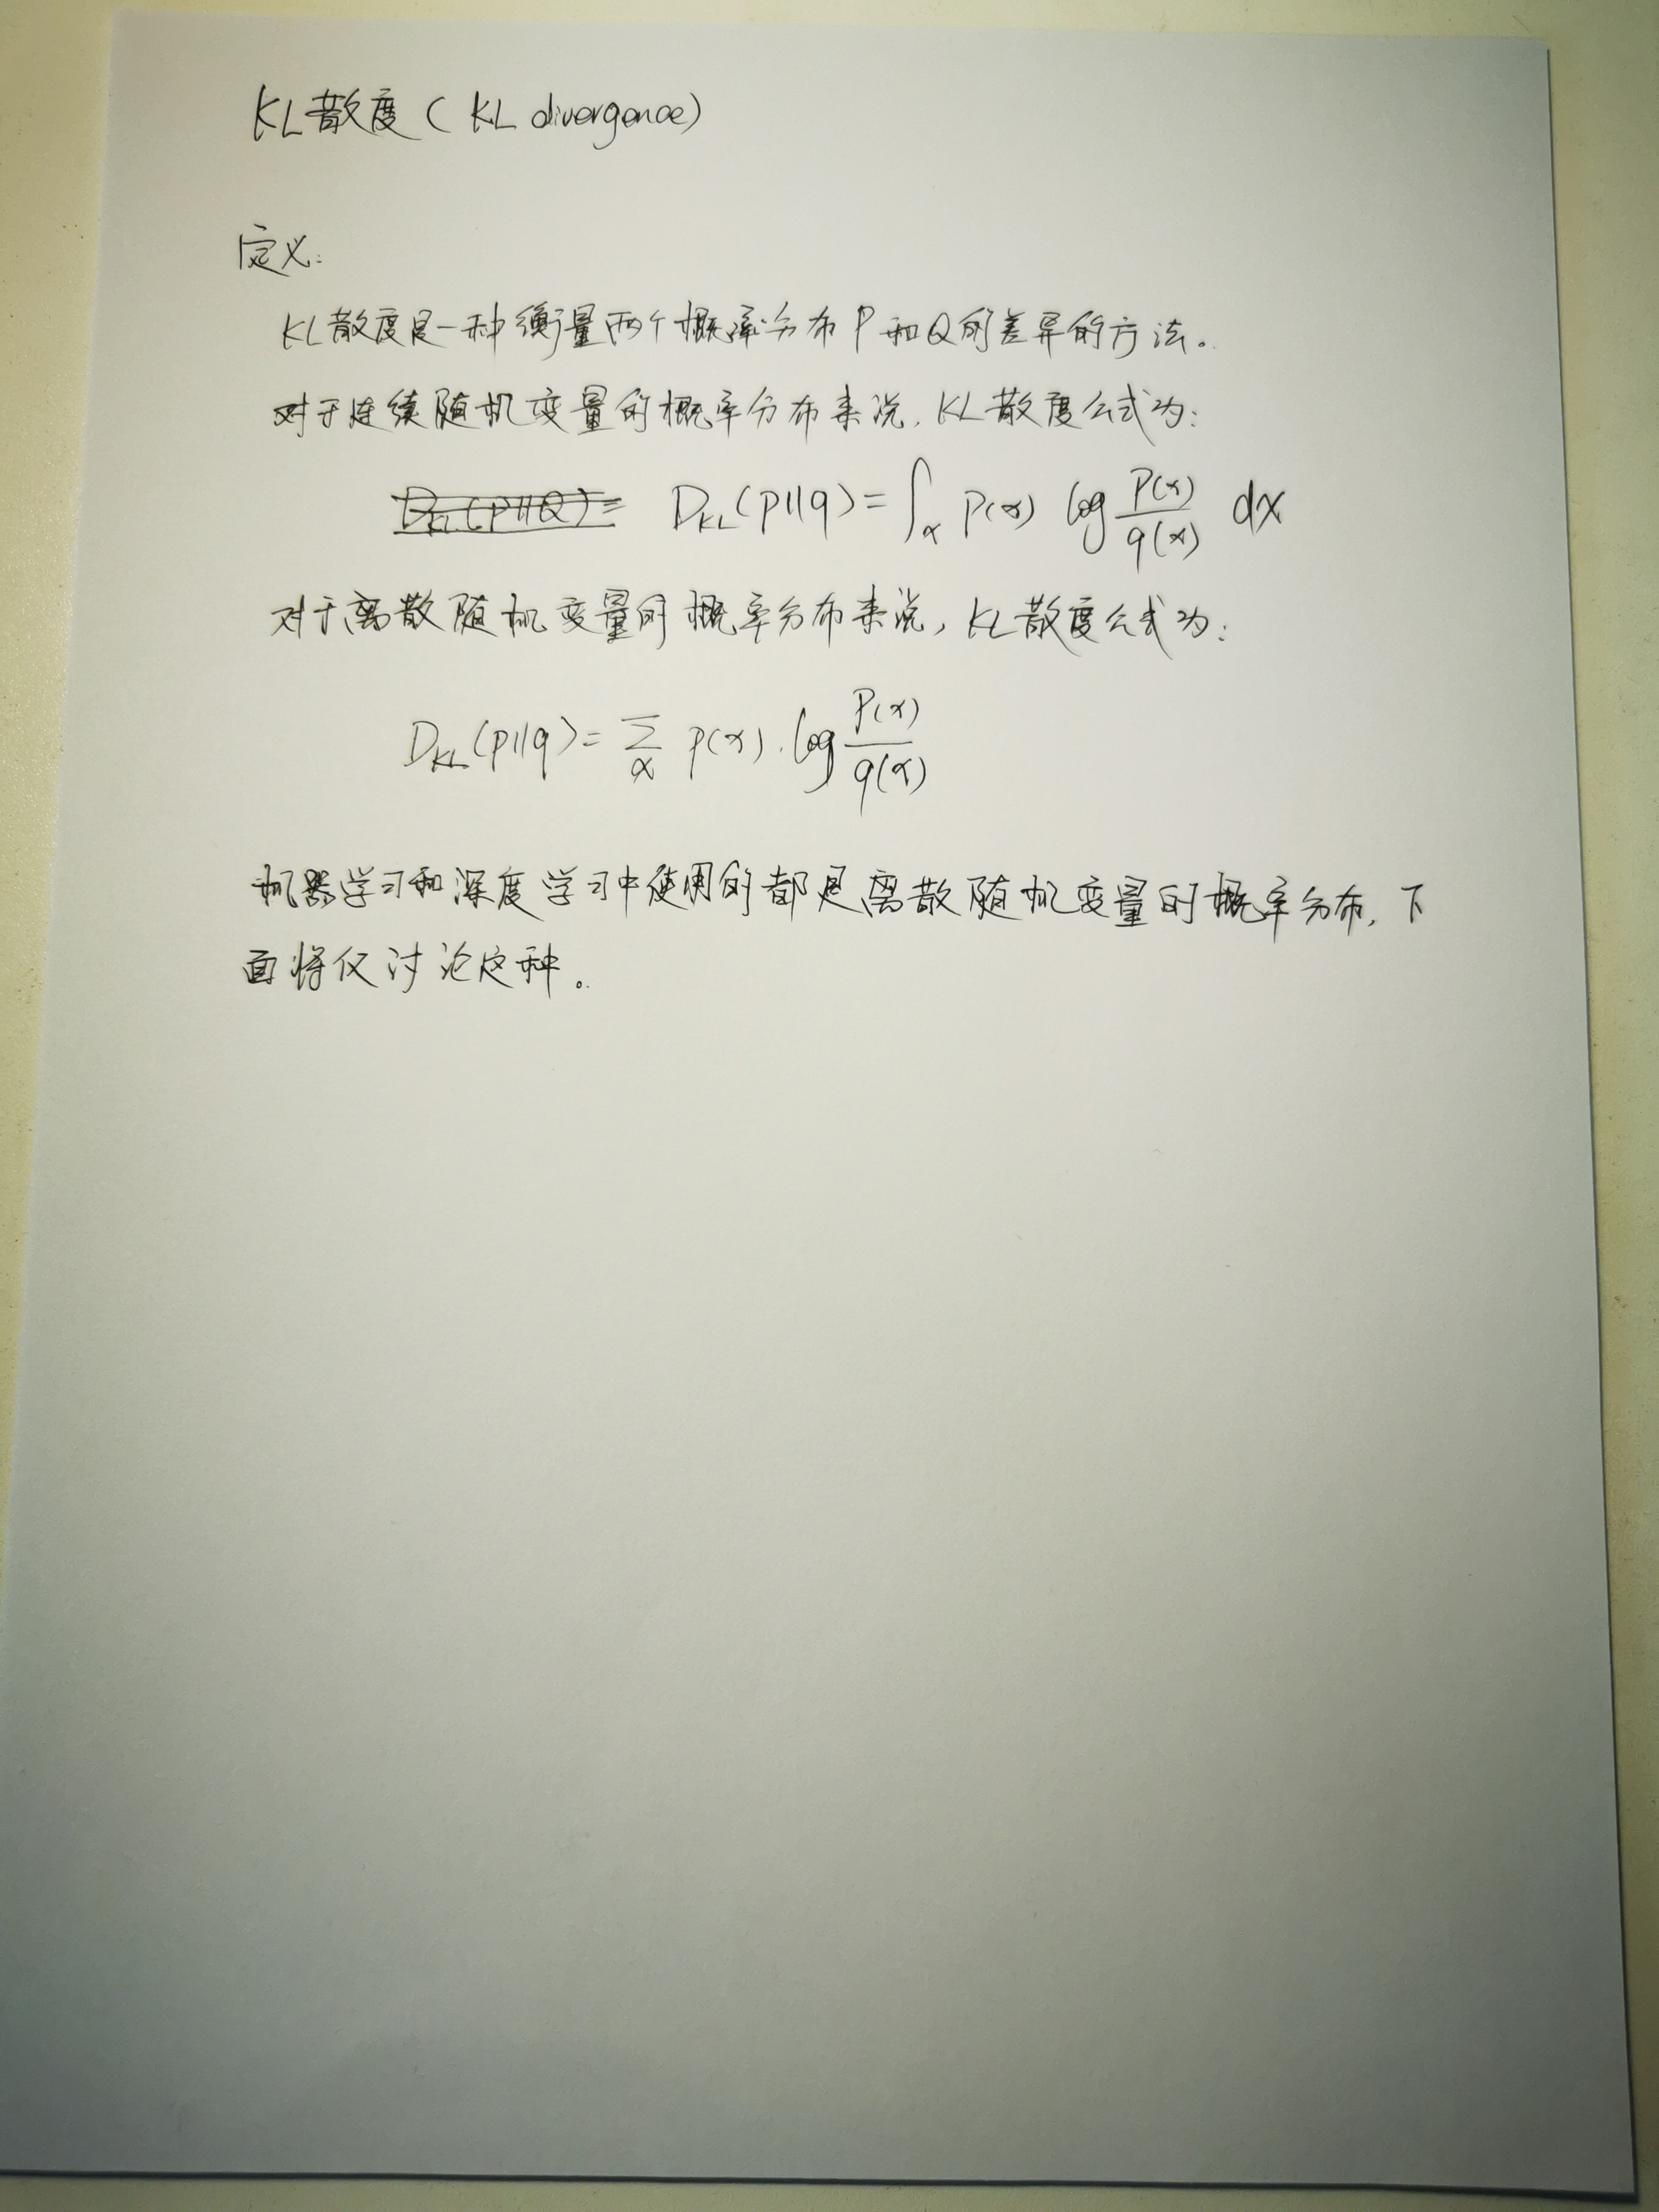 KL散度（KL divergence）
定义：
KL散度是一种衡量两个概率分布P和Q的差异的方法。
对于连续随机变量的概率分布来说，KL散度公式为：
D_KL(P||Q)= D_KL(p||q)=∫_x p(x) log p(x)/q(x) dx
对于离散随机变量的概率分布来说，KL散度公式为：
D_KL(p||q)=∑_x p(x)·log p(x)/q(x)
机器学习和深度学习中使用的都是离散随机变量的概率分布，下
面将仅讨论这种。